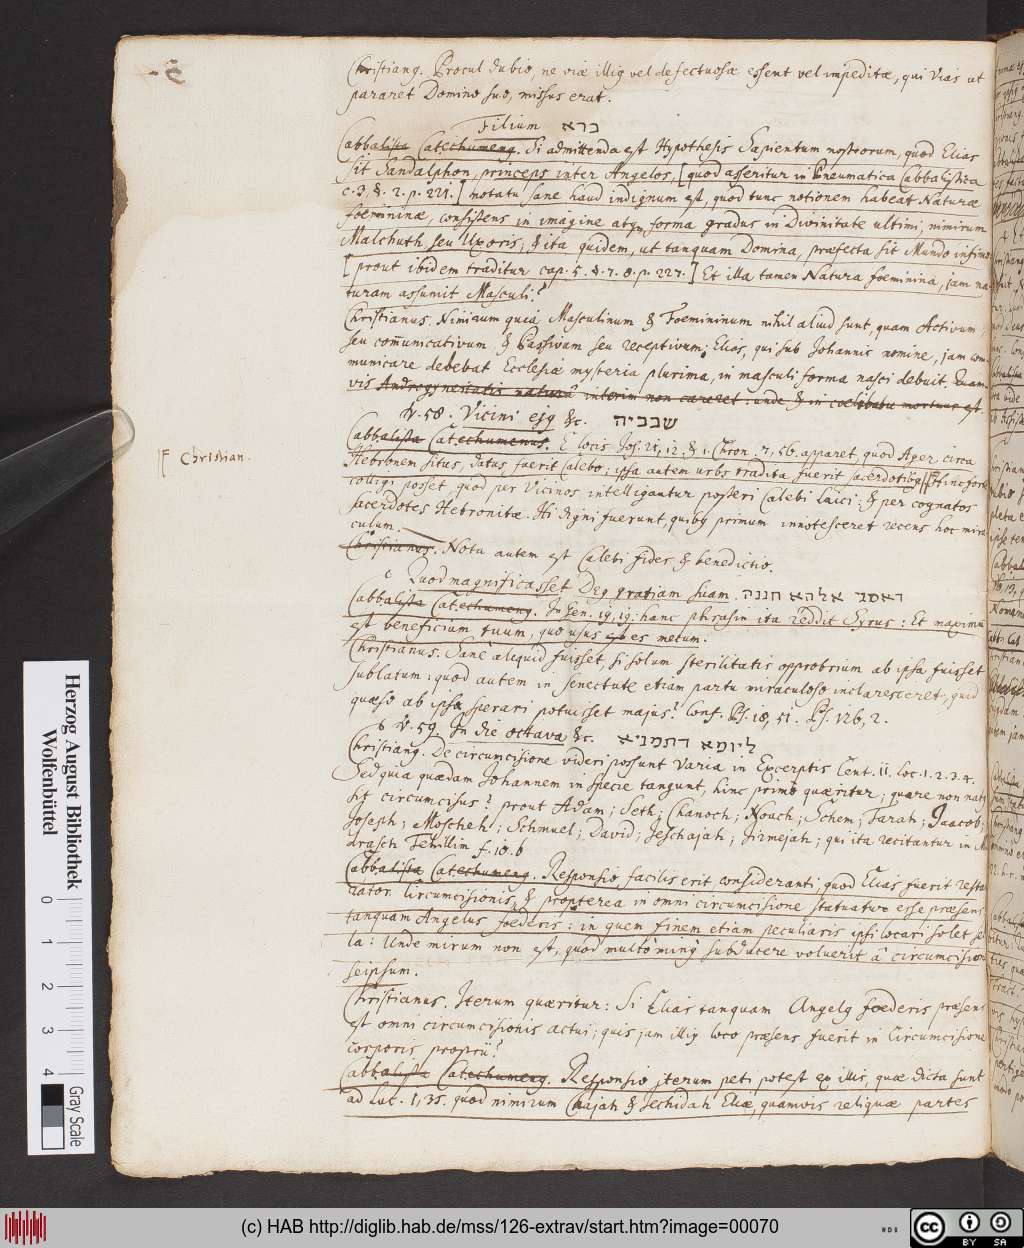 Christiang. Procul dubio, ne viæ illig vel defectuosæ essent vel impeditæ, qui vias ut
pararet Domino suo, missus erat.
Filium ברא
Cabbalista Catechumeng. Si admittenda est Hypothesis Sapientum nostrorum, quod Elias
sit Sandalphon, princeps inter Angelos, [quod asseritur in Pneumatica Cabbalistica
c. 3. §. 2. p. 221.] notatu sane haud indignum est, quod tunc notionem habeat Naturæ
foemininæ, consistens in imagine atque forma gradus in Divinitate ultimi, nimirum
Malchuth seu Uxoris; & ita quidem, ut tanquam Domina, præfecta sit Mundo infimo
[prout ibidem traditur cap. 5. §. 7. 8. p. 227.] Et illa tamen Natura foeminina, jam na-
turam assumit Masculi?
Christianus. Nimirum quia Masculinum & Foemininum nihil aliud sunt, quam Activum
seu com̄unicativum & Passivum seu receptivum; Elias, qui sub Johannis nomine, jam com-
municare debebat Ecclesiæ mysteria plurima, in masculi forma nasci debuit. Quam-
vis Androgyneitatis natura interim non careret: unde & in coelibatu mortuus est.
v. 58. Vicini ejg &c. שבביה
Cabbalista Catechumenus. E locis Jos. 21, 12. & 1. Chron. 7, 56. apparet, quod Ager circa
Hebronem situs, datus fuerit Calebo; ipsa autem urbs tradita fuerit sacerdotibg hinc forte
F Christian.
colligi posset quod per Vicinos intelligantur posteri Calebi laici; & per cognatos
sacerdotes Hebronitæ. Hi digni fuerunt, quibg primum innotesceret recens hoc mira-
culum.
Christianus. Nota autem est Calebi fides & benedictio.
Quod magnificasset Deg gratiam suam. דאסגי אלהא חננה
Cabbalista Catechumeng. In Gen. 19, 19. hanc phrasin ita reddit Syrus: Et maximum
est beneficium tuum, quo usus es metum.
Christianus. Sane aliquid fuisset, si solum sterilitatis opprobrium ab ipsa fuisset
sublatum: quod autem in senectute etiam partu miraculoso inclaresceret, quid
quæso ab ipsa sperari potuisset majus? Conf. Ps. 18, 51. Ps. 126, 2.
v. 59. In die octava &c. ליומא דתמניא
Christiang. De circumcisione videri possunt Varia in Excerptis Cent. II. loc. 1. 2. 3. 4.
Sed quia quædam Johannem in specie tangunt, hinc primo quæritur; quare non natg
sit circumcisus? prout Adam; Seth; Chanoch; Noach; Schem; Tarah; Jaacob;
Joseph; Moscheh; Schmuel; David; Jeschajah; Jirmejah; qui ita recitantur in Mi-
drasch Tehillim f. 10. b
Cabbalista Catechumeng. Responsio facilis erit consideranti, quod Elias fuerit restau-
rator Circumcisionis, & propterea in omni circumcisione statuatur esse præsens
tanquam Angelus foederis: in quem finem etiam peculiaris ipsi locari solet sel-
la: Unde mirum non est, quod multo ming subducere voluerit a circumcisione
seipsum.
Christianus. Iterum quæritur: Si Elias tanquam Angelg foederis præsens
est omni circumcisionis actui; quis jam illig loco præsens fuerit in Circumcisione
corporis proprii?
Cabbalista Catechumeng. Responsio iterum peti potest ex illis, quæ dicta sunt
ad Luc. 1, 35. quod nimirum Chajah & Jechidah Eliæ, quamvis reliquæ partes
Herzog August Bibliothek
Wolfenbüttel
0 1 2 3 4 Gray Scale
(c) HAB http://diglib.hab.de/mss/126-extrav/start.htm?image=00070
HAB
CC BY SA